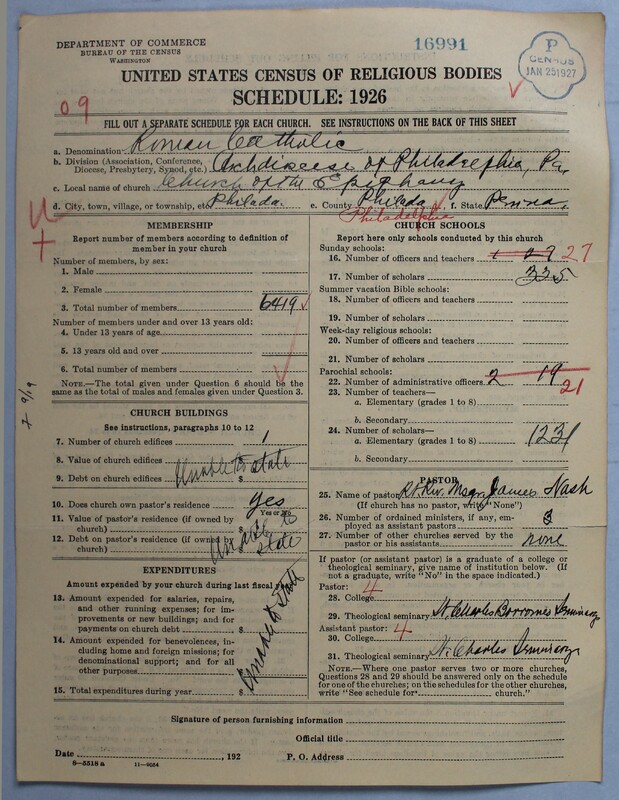 DEPARTMENT OF COMMERCE
BUREAU OF THE CENSUS
WASHINGTON
16991
P
CENSUS
JAN 25 1927
UNITED STATES CENSUS OF RELIGIOUS BODIES
SCHEDULE: 1926
09
FILL OUT A SEPARATE SCHEDULE FOR EACH CHURCH. SEE INSTRUCTIONS ON THE BACK OF THIS SHEET
a. Denomination Roman Catholic
b. Division (Association, Conference, Diocese, Presbytery, Synod, etc.) Archdiocese of Philadelphia, Pa.
c. Local name of church Church of the Epiphany
d. City, town, village, or township, etc. Philada. e. County Philada f. State Penna.
Philadelphia
MEMBERSHIP
Report number of members according to definition of
member in your church
Number of members, by sex:
1. Male
2. Female
3. Total number of members 6419
Number of members under and over 13 years old:
4. Under 13 years of age
5. 13 years old and over
6. Total number of members
NOTE.—The total given under Question 6 should be the
same as the total of males and females given under Question 3.
CHURCH BUILDINGS
See instructions, paragraphs 10 to 12
7. Number of church edifices 1
8. Value of church edifices $
9. Debt on church edifices $ Unable to state
10. Does church own pastor's residence? Yes
Yes or No
11. Value of pastor's residence (if owned by
church) $
12. Debt on pastor's residence (if owned by
church) $ Unable to state
EXPENDITURES
Amount expended by your church during last fiscal year
13. Amount expended for salaries, repairs,
and other running expenses; for im-
provements or new buildings; and for
payments on church debt $
14. Amount expended for benevolences, in-
cluding home and foreign missions; for
denominational support; and for all
other purposes $
15. Total expenditures during year $
Unable to state
CHURCH SCHOOLS
Report here only schools conducted by this church
Sunday schools:
16. Number of officers and teachers 1 27 27
17. Number of scholars 335
Summer vacation Bible schools:
18. Number of officers and teachers
19. Number of scholars
Week-day religious schools:
20. Number of officers and teachers
21. Number of scholars
Parochial schools:
22. Number of administrative officers 2 19
21
23. Number of teachers—
a. Elementary (grades 1 to 8)
b. Secondary
24. Number of scholars—
a. Elementary (grades 1 to 8) 1231
b. Secondary
PASTOR
25. Name of pastor Rt. Rev. Msgr. James Nash
(If church has no pastor, write "None")
26. Number of ordained ministers, if any, em-
ployed as assistant pastors 3
27. Number of other churches served by the
pastor or his assistants none
If pastor (or assistant pastor) is a graduate of a college or
theological seminary, give name of institution below. (If
not a graduate, write "No" in the space indicated.)
Pastor: 4
28. College
29. Theological seminary St. Charles Borromeo Seminary
Assistant pastor: 4
30. College
31. Theological seminary St. Charles Seminary
NOTE.—Where one pastor serves two or more churches,
Questions 28 and 29 should be answered only on the schedule
for one of the churches; on the schedules for the other churches,
write "See schedule for church."
Signature of person furnishing information
Official title
Date , 192 P. O. Address
8—5518 a 11—9054